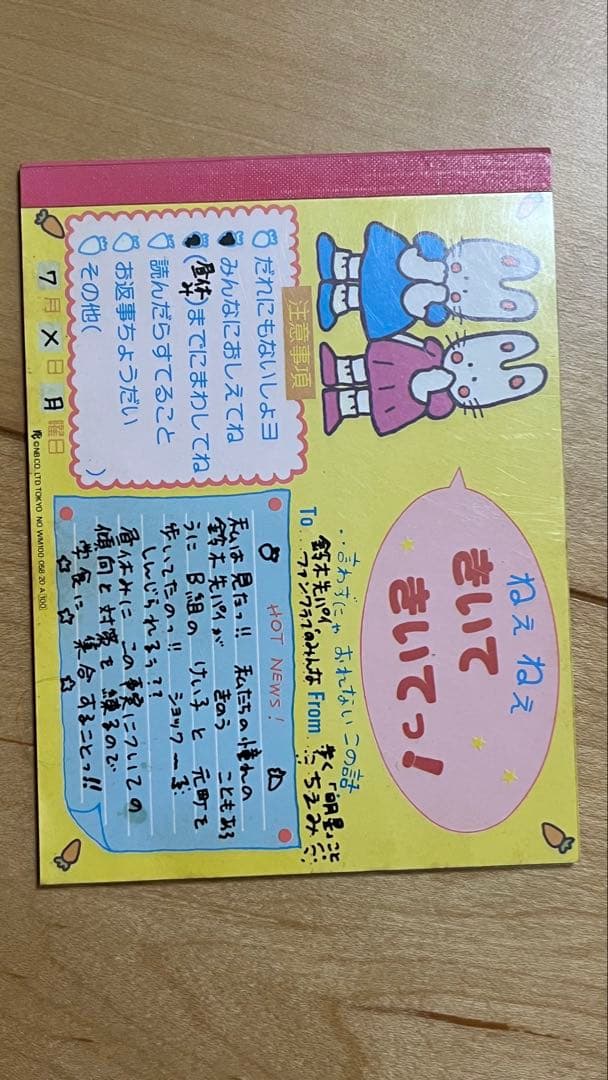 ねえ ねえ
きいて
きいてっ!
‥言わずにゃ おれない この話
To 鈴木先パイ
ファンクラブのみんな
From 歩く「明星」こと
ちえみ
注意事項
だれにもないしょヨ
みんなにおしえてね
(昼休みまでにまわしてね
読んだらすてること
お返事ちょうだい
その他( )
7月×日月曜日
HOT NEWS!
私は見たっ!! 私たちの憧れの
鈴木先パイが きのう こともあろ
うに B組の けい子と 元町を
歩いてたのっ!! ショック
しんじられるぅ??
昼休みに この事実についての
傾向と対策を 練るので
学食に 集合することっ!!
©NB CO. LTD TOKYO NO WM100 058 20 A 100